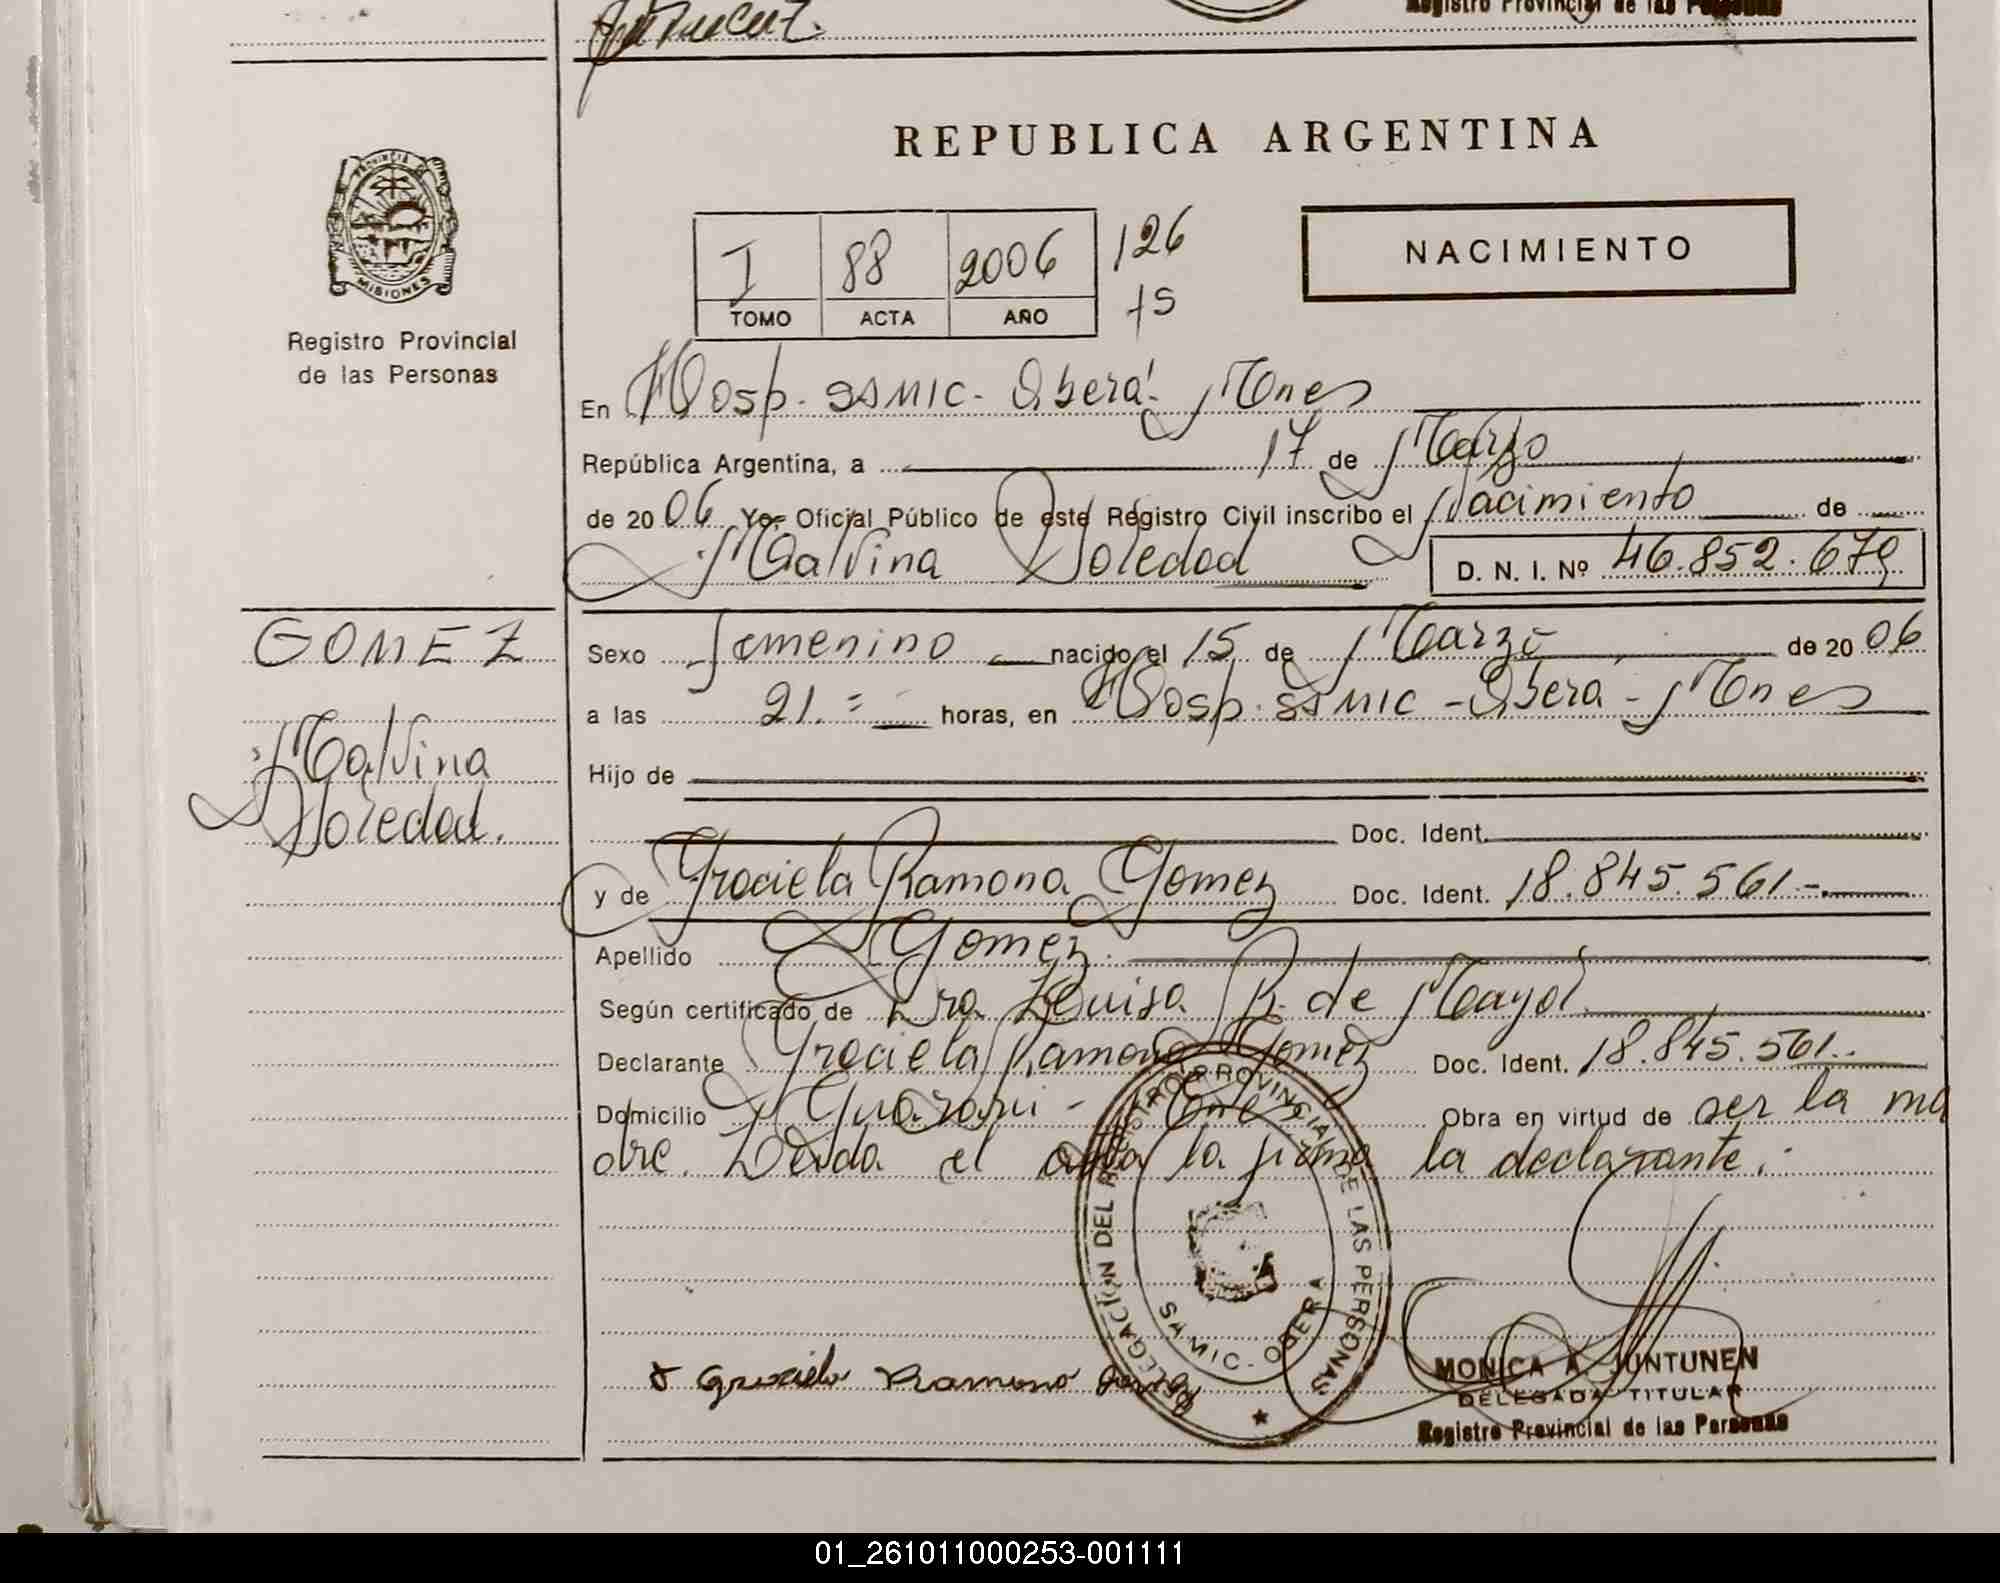 Registro Provincial de las Personas
REPUBLICA ARGENTINA
PROVINCIA DE
MISIONES
Registro Provincial
de las Personas
I 88 2006 126
TOMO ACTA AÑO 15
NACIMIENTO
En Hosp. SAMIC - Oberá - Mnes
República Argentina, a 17 de Marzo
de 2006 Yo, Oficial Público de este Registro Civil inscribo el Nacimiento de
Malvina Soledad D. N. I. Nº 46.852.679
GOMEZ
Malvina
Soledad.
Sexo femenino nacido el 15 de Marzo de 2006
a las 21.= horas, en Hosp. SAMIC - Oberá - Mnes
Hijo de
Doc. Ident.
y de Graciela Ramona Gomez Doc. Ident. 18.845.561.-
Apellido Gomez.
Según certificado de Dra Luisa B. de Mayol
Declarante Graciela Ramona Gomez Doc. Ident. 18.845.561.-
Domicilio Guarani - Mnes Obra en virtud de ser la ma
dre. Leída el acta la firma la declarante.-
DELEGACION DEL REGISTRO PROVINCIAL DE LAS PERSONAS
SAMIC - OBERA
Graciela Ramona Gomez
MONICA A. JUNTUNEN
DELEGADA TITULAR
Registro Provincial de las Personas
01_261011000253-001111